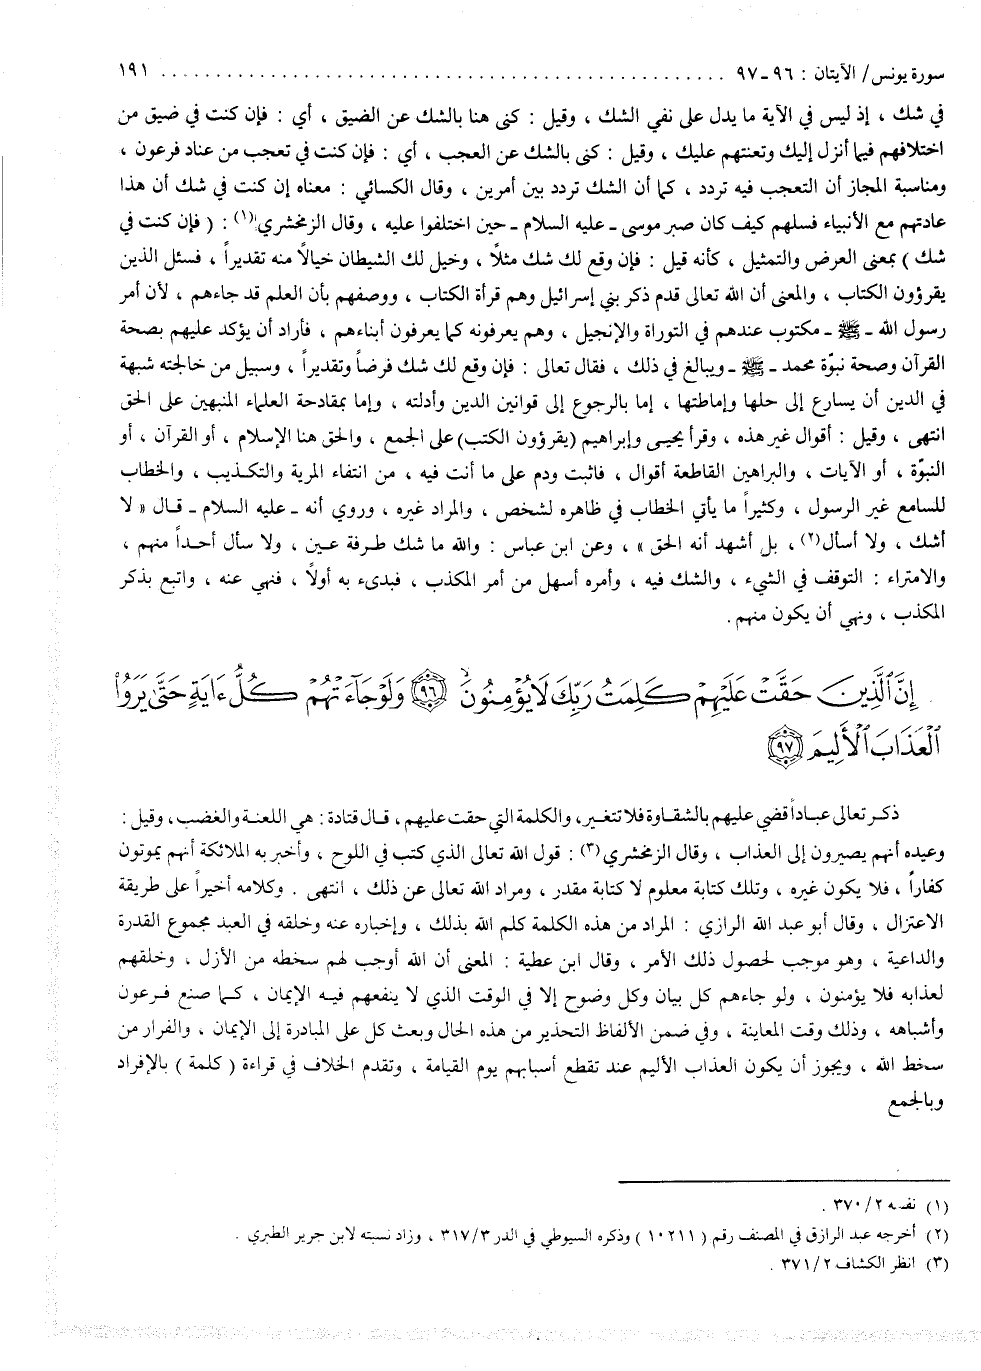 سورة يونس/ الآيتان : ٩٦-٩٧ ............................................ ١٩١
في شك ، إذ ليس في الآية ما يدل على نفي الشك ، وقيل : كنى هنا بالشك عن الضيق ، أي : فإن كنت في ضيق من
اختلافهم فيما أنزل إليك وتعنتهم عليك ، وقيل : كنى بالشك عن العجب ، أي : فإن كنت في تعجب من عناد فرعون ،
ومناسبة المجاز أن التعجب فيه تردد ، كما أن الشك تردد بين أمرين ، وقال الكسائي : معناه إن كنت في شك أن هذا
عادتهم مع الأنبياء فسلهم كيف كان صبر موسى ـ عليه السلام ـ حين اختلفوا عليه ، وقال الزمخشري(١) : ( فإن كنت في
شك ) بمعنى العرض والتمثيل ، كأنه قيل : فإن وقع لك شك مثلاً ، وخيل لك الشيطان خيالاً منه تقديراً ، فسئل الذين
يقرؤون الكتاب ، والمعنى أن الله تعالى قدم ذكر بني إسرائيل وهم قرأة الكتاب ، ووصفهم بأن العلم قد جاءهم ، لأن أمر
رسول الله ـ ﷺ ـ مكتوب عندهم في التوراة والإنجيل ، وهم يعرفونه كما يعرفون أبناءهم ، فأراد أن يؤكد عليهم بصحة
القرآن وصحة نبوّة محمد ـ ﷺ ـ ويبالغ في ذلك ، فقال تعالى : فإن وقع لك شك فرضاً وتقديراً ، وسبيل من خالجته شبهة
في الدين أن يسارع إلى حلها وإماطتها ، إما بالرجوع إلى قوانين الدين وأدلته ، وإما بمقادحة العلماء المنبهين على الحق
انتهى ، وقيل : أقوال غير هذه ، وقرأ يحيى وإبراهيم (يقرؤون الكتب) على الجمع ، والحق هنا الإسلام ، أو القرآن ، أو
النبوّة ، أو الآيات ، والبراهين القاطعة أقوال ، فاثبت ودم على ما أنت فيه ، من انتفاء المرية والتكذيب ، والخطاب
للسامع غير الرسول ، وكثيراً ما يأتي الخطاب في ظاهره لشخص ، والمراد غيره ، وروي أنه ـ عليه السلام ـ قال « لا
أشك ، ولا أسأل(٢) ، بل أشهد أنه الحق » ، وعن ابن عباس : والله ما شك طرفة عين ، ولا سأل أحداً منهم ،
والامتراء : التوقف في الشيء ، والشك فيه ، وأمره أسهل من أمر المكذب ، فبدىء به أولاً ، فنهي عنه ، واتبع بذكر
المكذب ، ونهي أن يكون منهم .
إِنَّ ٱلَّذِينَ حَقَّتْ عَلَيْهِمْ كَلِمَتُ رَبِّكَ لَا يُؤْمِنُونَ ۝٩٦ وَلَوْ جَآءَتْهُمْ كُلُّ ءَايَةٍ حَتَّىٰ يَرَوُا۟
ٱلْعَذَابَ ٱلْأَلِيمَ ۝٩٧
ذكر تعالى عباداً قضي عليهم بالشقاوة فلا تتغير، والكلمة التي حقت عليهم ، قال قتادة : هي اللعنة والغضب ، وقيل :
وعيده أنهم يصيرون إلى العذاب ، وقال الزمخشري(٣) : قول الله تعالى الذي كتب في اللوح ، وأخبر به الملائكة أنهم يموتون
كفاراً ، فلا يكون غيره ، وتلك كتابة معلوم لا كتابة مقدر ، ومراد الله تعالى عن ذلك ، انتهى . وكلامه أخيراً على طريقة
الاعتزال ، وقال أبو عبد الله الرازي : المراد من هذه الكلمة كلم الله بذلك ، وإخباره عنه وخلقه في العبد مجموع القدرة
والداعية ، وهو موجب لحصول ذلك الأمر ، وقال ابن عطية : المعنى أن الله أوجب لهم سخطه من الأزل ، وخلقهم
لعذابه فلا يؤمنون ، ولو جاءهم كل بيان وكل وضوح إلا في الوقت الذي لا ينفعهم فيه الإيمان ، كما صنع فرعون
وأشباهه ، وذلك وقت المعاينة ، وفي ضمن الألفاظ التحذير من هذه الحال وبعث كل على المبادرة إلى الإيمان ، والفرار من
سخط الله ، ويجوز أن يكون العذاب الأليم عند تقطع أسبابهم يوم القيامة ، وتقدم الخلاف في قراءة ( كلمة ) بالإفراد
وبالجمع
(١) نفسه ٣٧٠/٢ .
(٢) أخرجه عبد الرازق في المصنف رقم ( ١٠٢١١ ) وذكره السيوطي في الدر ٣١٧/٣ ، وزاد نسبته لابن جرير الطبري .
(٣) انظر الكشاف ٣٧١/٢ .